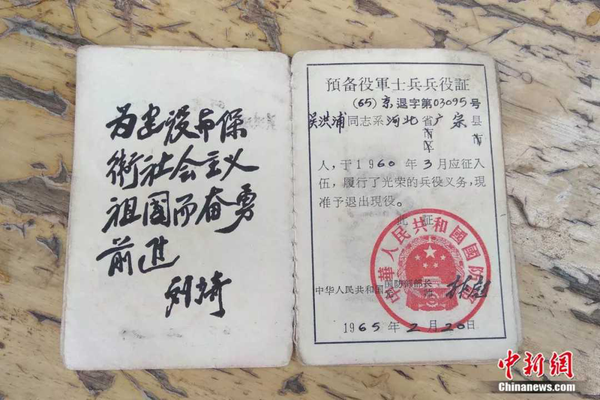 为建设和保
衛社会主义
祖國而奋勇
前進
预备役軍士兵兵役証
(65)京退字第03095号
吴洪浦同志系河北省广宗县
人，于1960年3月应征入
伍，履行了光荣的兵役义务，現
准予退出現役。
此証
中華人民共和國國防
中华人民共和国国防部部长
1965年2月20日
中新网
Chinanews.com